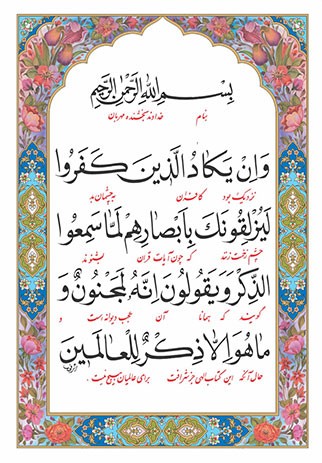 بِسْمِ اللهِ الرَّحْمٰنِ الرَّحِیْمِ
بنام خداوند بخشنده مهربان
وَاِنْ یَکَادُ الَّذینَ کَفَرُوا
نزدیک بود کافران به چشمان بد
لَیُزْلِقُونَکَ بِاَبْصَارِهِمْ لَمَّا سَمِعُوا
چشم زخمت زنند که چون آیات قرآن بشنوند
الذِّکْرَ وَیَقُولُونَ اِنَّهُ لَمَجْنُونٌ وَ
گویند که همانا آن عجب دیوانه است و
مَا هُوَ اِلَّا ذِکْرٌ لِلْعَالَمینَ
حال آنکه این کتاب الهی جز شرافت برای عالمیان هیچ نیست